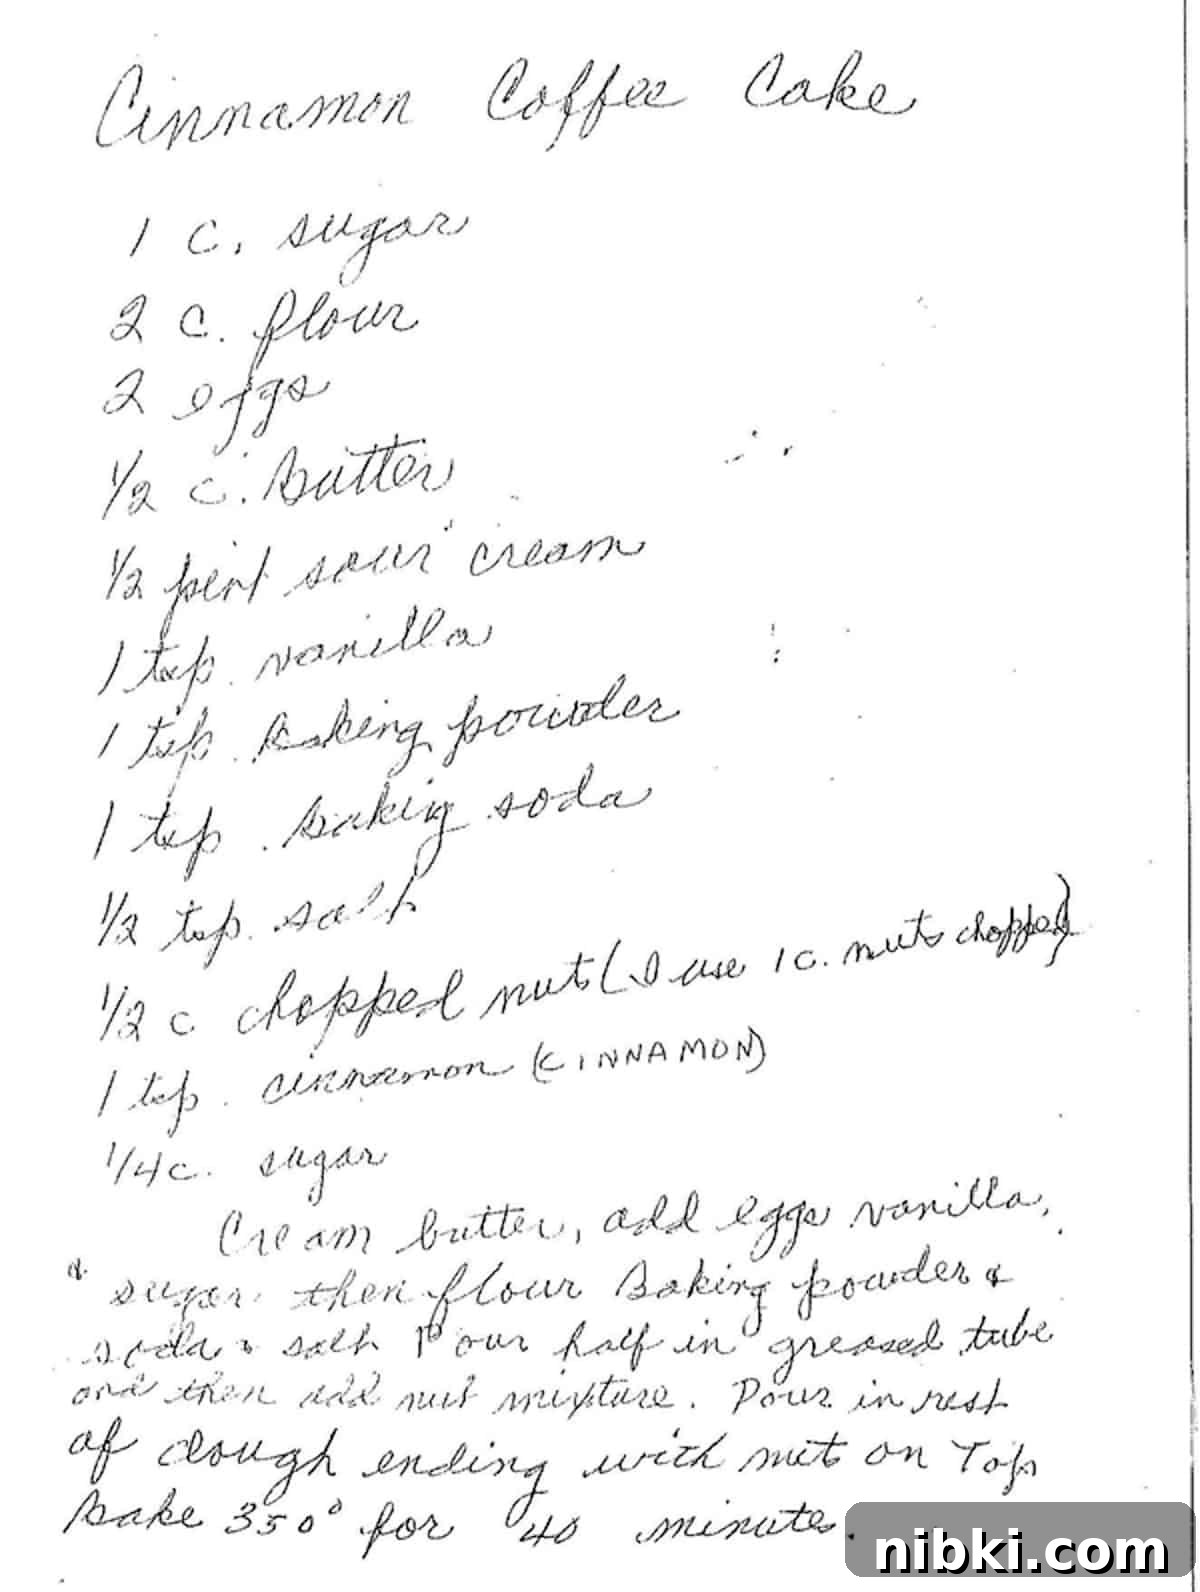 Cinnamon Coffee Cake
1 c. sugar
2 c. flour
2 eggs
1/2 c. butter
1/2 pint sour cream
1 tsp. vanilla
1 tsp. Baking powder
1 tsp. baking soda
1/2 tsp. salt
1/2 c chopped nuts (I use 1 c. nuts chopped)
1 tsp. cinnamon (CINNAMON)
1/4 c. sugar
Cream butter, add eggs vanilla,
& sugar then flour Baking powder &
soda & salt Pour half in greased tube
and then add nut mixture. Pour in rest
of dough ending with nuts on Top
bake 350° for 40 minutes.
nibki.com